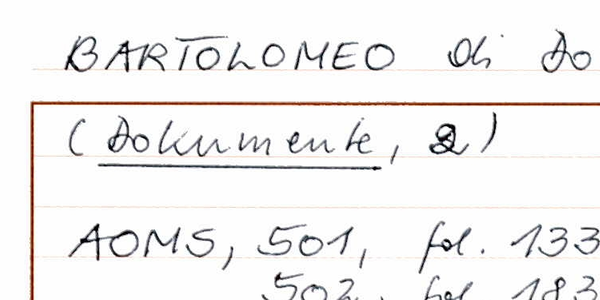 BARTOLOMEO di Do
(Dokumente, 2)
AOMS, 501, fol. 133
502, fol. 183